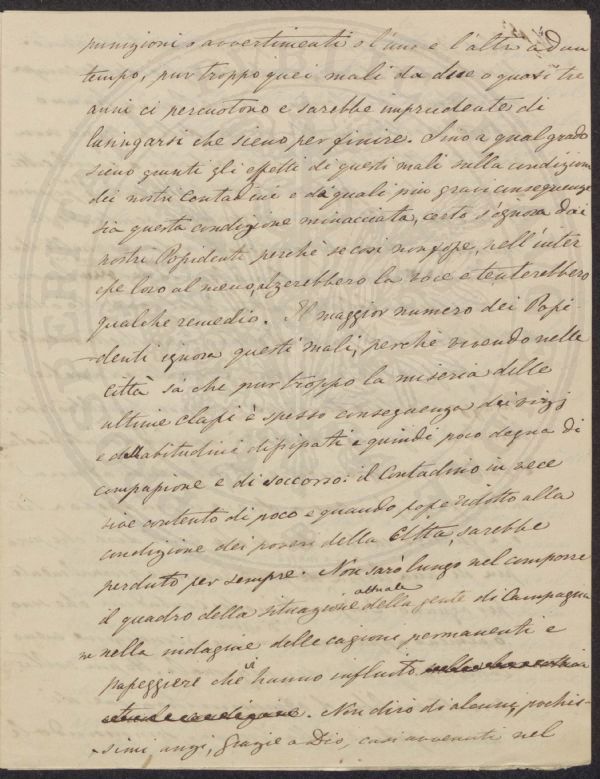 punizioni o avvertimenti o l'uno e l'altro ad un
tempo, pur troppo quei mali da due o quasi tre
anni ci percuotono e sarebbe imprudente di
lusingarsi che sieno per finire. Sino a qual grado
sieno giunti gli effetti di questi mali sulla condizione
dei nostri Contadini e da quali più gravi conseguenze
sia questa condizione minacciata, certo s'ignora dai
nostri Possidenti perchè se così non fosse, nell'inter
esse loro al meno, alzerebbero la voce e tenterebbero
qualche remedio. Il maggior numero dei Possi-
denti ignora questi mali, perchè vivendo nelle
Città sà che pur troppo la miseria delle
ultime classi è spesso conseguenza dei vizj
e dell'abitudini dissipati e quindi poco degna di
compassione e di soccorso: il Contadino in vece
vive contento di poco e quando fosse ridotto alla
condizione dei poveri della Città, sarebbe
perduto per sempre. Non sarò lungo nel comporre
il quadro della situazione attuale della gente di Campagna
nè nella indagine delle cagioni permanenti e
passeggiere che vi hanno influito
. Non dirò di alcuni, pochis-
simi anzi, grazie a Dio, casi avvenuti nel